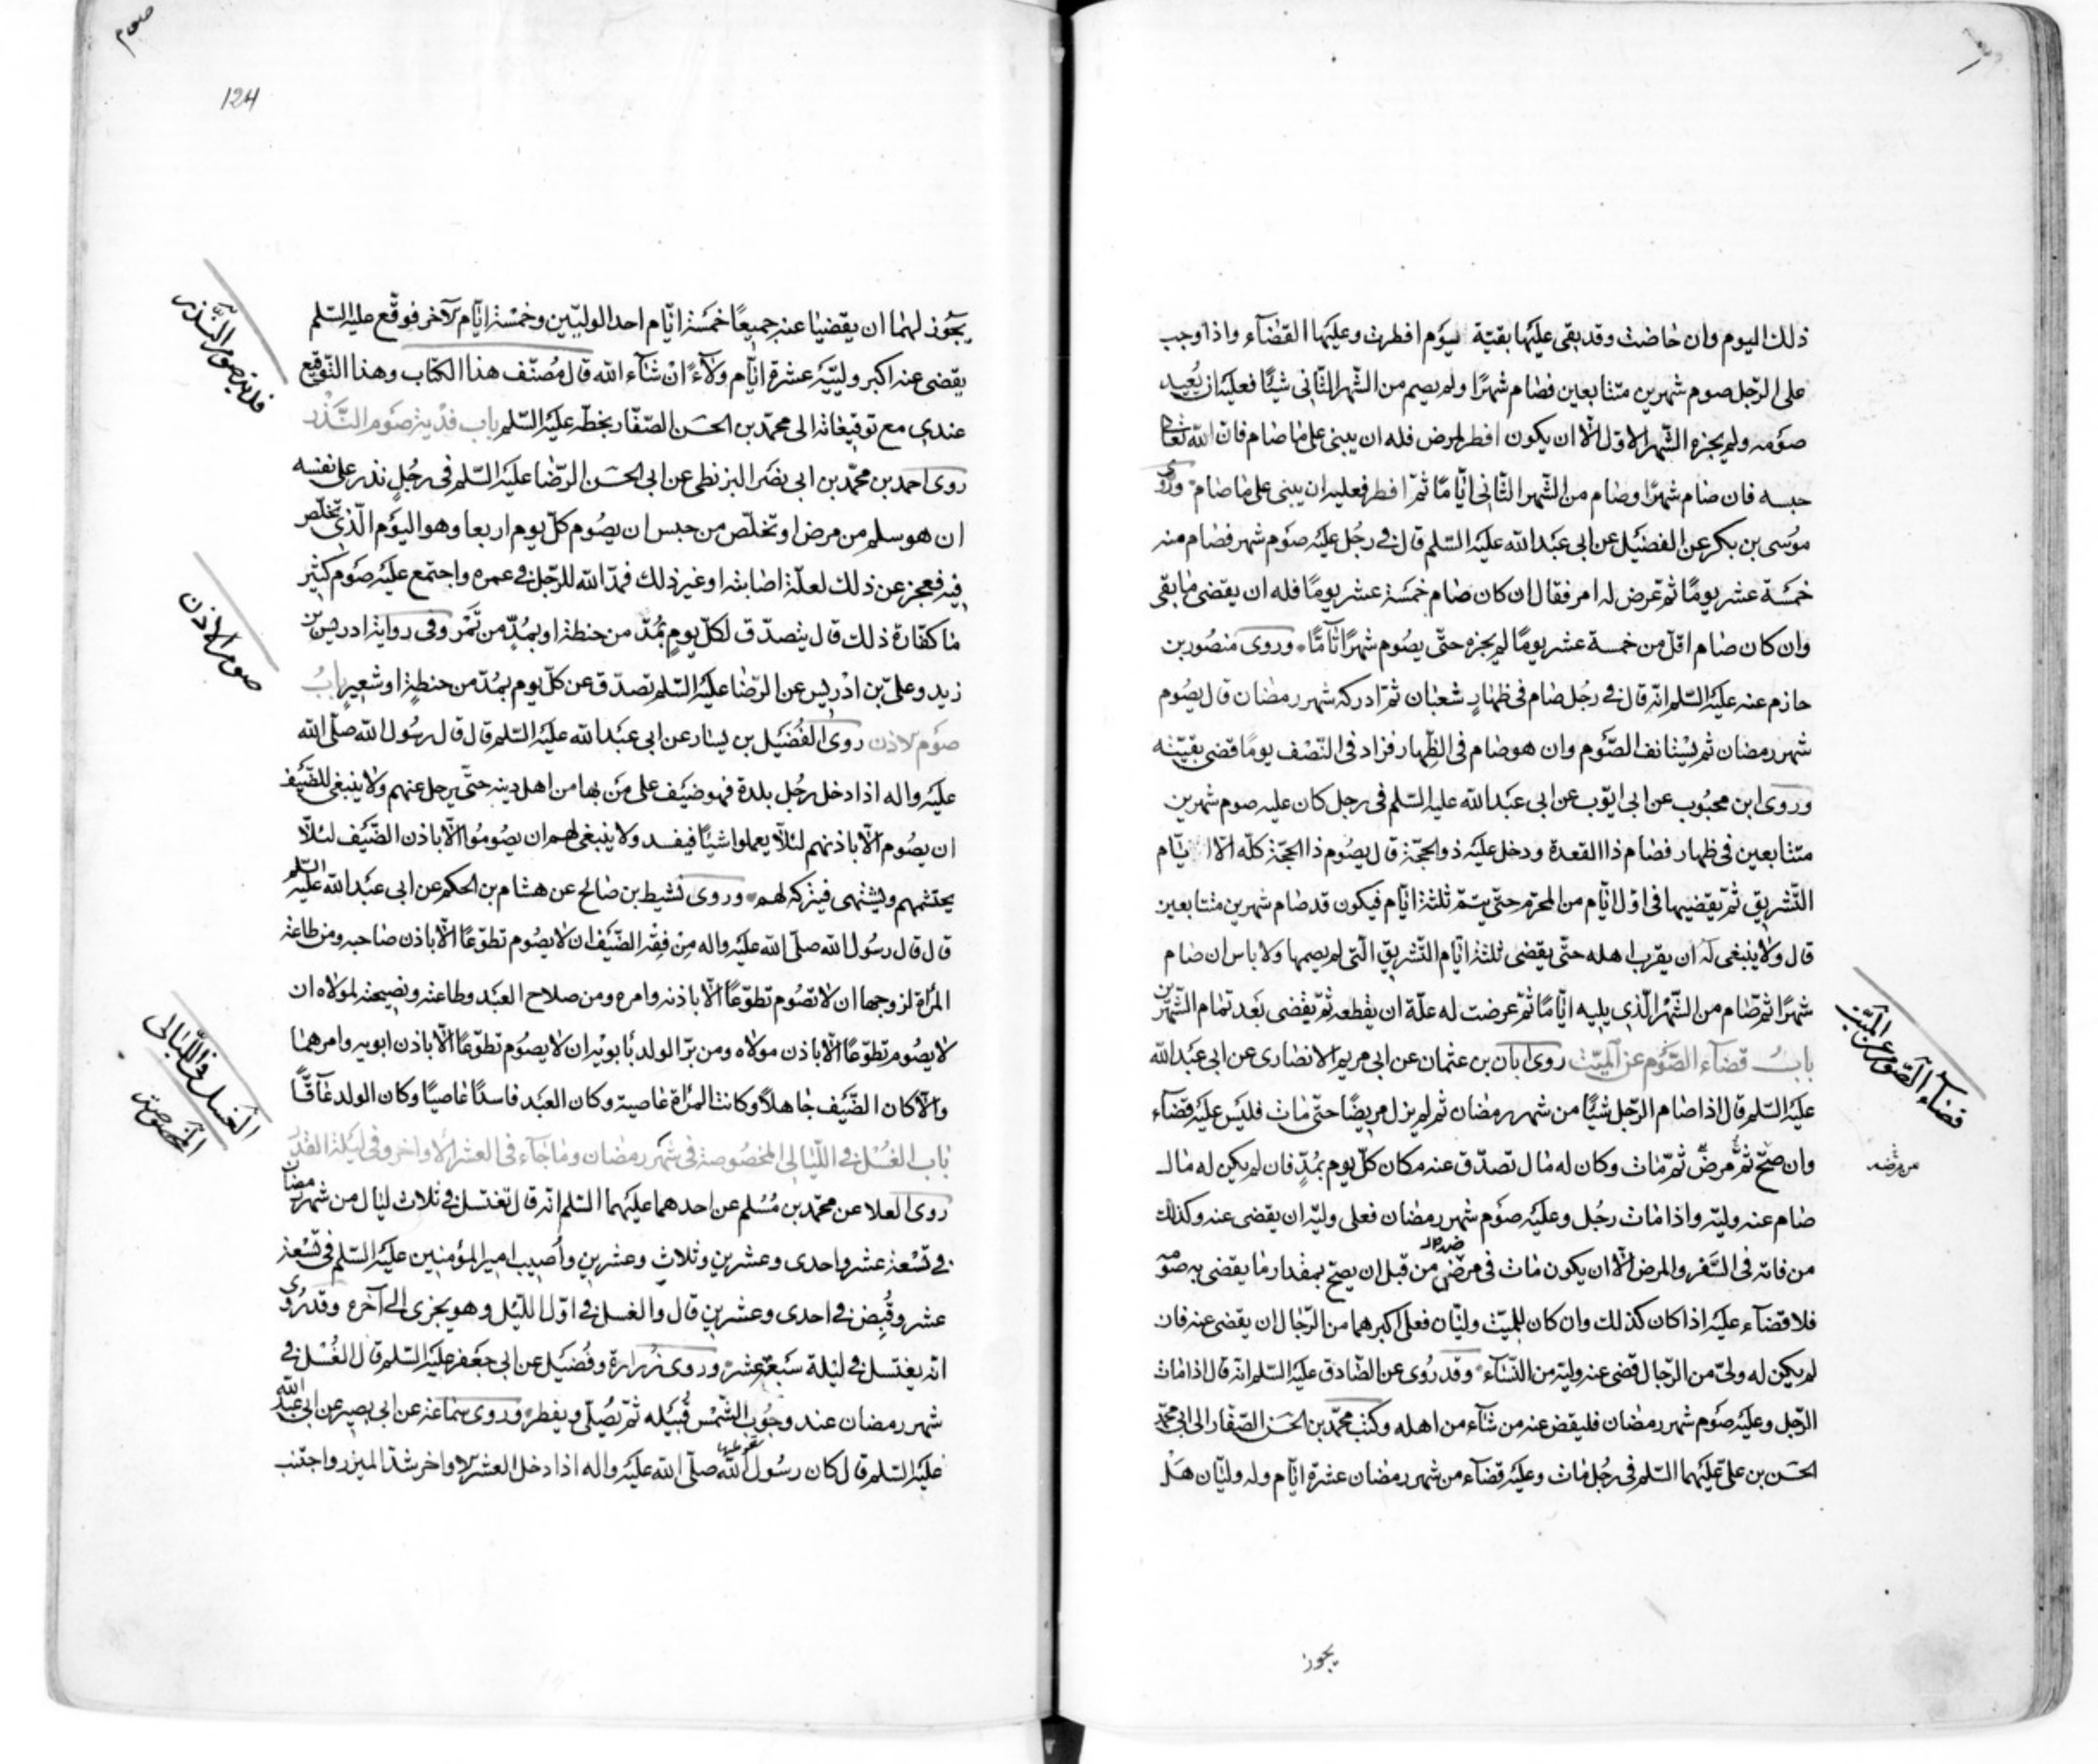 ذلك اليوم وان حاضت وقد بقى عليها بقيّة يوم افطرت وعليها القضآء واذا وجب
على الرّجل صوم شهرين متتابعين فصام شهرًا ولم يصم من الشّهر الثّانى شيئًا فعليه ان يُعيد
صومه ولم يجزه الشّهر الاوّل الّا ان يكون افطر لمرض فله ان يبنى على ما صام فان الله تعالى
حبسه فان صام شهرًا وصام من الشّهر الثّانى ايّامًا ثمّ افطر فعليه ان يبنى على ما صام وروى
موسى بن بكر عن الفضيل عن ابى عبد الله عليه السّلم قال فى رجُل عليه صوم شهر فصام منه
خمسة عشر يومًا ثم عرض له امر فقال ان كان صام خمسة عشر يومًا فله ان يقضى ما بقى
وان كان صام اقلّ من خمسة عشر يومًا لم يجزه حتّى يصُوم شهرًا تآمًّا وروى منصُور بن
حازم عنه عليه السّلم انّه قال فى رجُل صام فى ظهارٍ شعبان ثمّ ادركه شهر رمضان قال يصُوم
شهر رمضان ثم يستانف الصّوم وان هو صام فى الظّهار فزاد فى النّصف يومًا قضى بقيّته
وروى ابن محبُوب عن ابى ايّوب عن ابى عبد الله عليه السّلم فى رجل كان عليه صوم شهرين
متتابعين فى ظهار فصام ذا القعدة ودخل عليه ذو الحجّة قال يصُوم ذا الحجّة كلّه الّا ايّام
التّشريق ثمّ يقضيها فى اوّل ايّام من المحرّم حتّى يتمّ ثلثة ايّام فيكون قد صام شهرين متتابعين
قال ولا ينبغى له ان يقرب اهله حتّى يقضى ثلثة ايّام التّشريق الّتى لم يصمها ولا باس ان صام
شهرًا ثم صام من الشّهر الّذى يليه ايّامًا ثمّ عرضت له علّة ان يقطعه ثمّ يقضى بعد تمام الشّهرين
بابُ قضآء الصّوم عن الميّت روى ابان بن عثمان عن ابى مريم الانصارى عن ابى عبد الله
عليه السّلم قال اذا صام الرّجل شيئًا من شهر رمضان ثم لم يزل مريضًا حتّى مات فليس عليه قضآء
وان صحّ ثمّ مرض ثمّ مات وكان له مال تصدّق عنه مكان كلّ يوم بمُدٍّ فان لم يكن له مال
صام عنه وليّه واذا مات رجُل وعليه صوم شهر رمضان فعلى وليّه ان يقضى عنه وكذلك
من فاته فى السّفر والمرض الّا ان يكون مات فى مرضه من قبل ان يصحّ بمقدار ما يقضى به صومه
فلا قضآء عليه اذا كان كذلك وان كان للميّت وليّان فعلى اكبرهما من الرّجال ان يقضى عنه فان
لم يكن له ولىّ من الرّجال قضى عنه وليّه من النّسآء وقد رُوى عن الصّادق عليه السّلم انّه قال اذا مات
الرّجل وعليه صوم شهر رمضان فليقض عنه من شآء من اهله وكتب محمّد بن الحسن الصّفّار الى ابى محمّد
الحسن بن علىّ عليهما السّلم فى رجُل مات وعليه قضآء من شهر رمضان عشرة ايّام وله وليّان هل
قضآء الصّوم عن الميّت
من مرضه
يجوز
صوم
124
يجوز لهما ان يقضيا عنه جميعًا خمسة ايّام احد الوليّين وخمسة ايّام الآخر فوقّع عليه السّلم
يقضى عنه اكبر وليّيه عشرة ايّام ولآءً ان شآء الله قال مُصنّف هذا الكتاب وهذا التّوقيع
عندى مع توقيعاته الى محمّد بن الحسن الصّفّار بخطّه عليه السّلم باب فدية صوم النّذر
روى احمد بن محمّد بن ابى نصر البزنطى عن ابى الحسن الرّضا عليه السّلم فى رجُلٍ نذر على نفسه
ان هو سلم من مرض او تخلّص من حبس ان يصُوم كلّ يوم اربعا وهو اليوم الّذى تخلّص
فيه فعجز عن ذلك لعلّة اصابته او غير ذلك فمدّ الله للرّجل فى عمره واجتمع عليه صوم كثير
ما كفّارة ذلك قال يتصدّق لكلّ يوم بمُدّ من حنطة او بمُدّ من تمر وفى رواية ادريس بن
زيد وعلىّ بن ادريس عن الرّضا عليه السّلم تصدّق عن كلّ يوم بمُدّ من حنطةٍ او شعير بابُ
صوم الاذن روى الفُضيل بن يسار عن ابى عبد الله عليه السّلم قال قال رسُول الله صلّى الله
عليه واله اذا دخل رجُل بلدة فهو ضيف على من بها من اهل دينه حتّى يرحل عنهم ولا ينبغى للضّيف
ان يصُوم الّا باذنهم لئلّا يعملوا شيئًا فيفسد ولا ينبغى لهم ان يصُومُوا الّا باذن الضّيف لئلّا
يحتشمهم ويشتهى فيتركه لهم وروى نشيط بن صالح عن هشام بن الحكم عن ابى عبد الله عليه السّلم
قال قال رسُول الله صلّى الله عليه واله من فِقه الضّيف ان لا يصُوم تطوّعًا الّا باذن صاحبه ومن طاعة
المرأة لزوجها ان لا تصُوم تطوّعًا الّا باذنه وامره ومن صلاح العبد وطاعته ونصيحته لمولاه ان
لا يصُوم تطوّعًا الّا باذن مولاه ومن برّ الولد بابويه ان لا يصُوم تطوّعًا الّا باذن ابويه وامرهما
والّا كان الضّيف جاهلًا وكانت المرأة عاصية وكان العبد فاسدًا عاصيًا وكان الولد عآقًّا
باب الغُسل فى اللّيالى المخصُوصة فى شهر رمضان وما جآء فى العشر الاواخر وفى ليلة القدر
روى العلا عن محمّد بن مُسلم عن احدهما عليهما السّلم انّه قال تغتسل فى ثلاث ليال من شهر رمضان
فى تسعة عشر واحدى وعشرين وثلاث وعشرين وأُصيب امير المؤمنين عليه السّلم فى تسعة
عشر وقُبض فى احدى وعشرين قال والغسل فى اوّل اللّيل وهو يجزى الى آخره وقد رُوى
انّه يغتسل فى ليلة سبعة عشر وروى زرارة وفُضيل عن ابى جعفر عليه السّلم قال الغُسل فى
شهر رمضان عند وجُوب الشّمس قُبيله ثمّ تصُلّى ويفطر وروى سماعة عن ابى بصير عن ابى عبد الله
عليه السّلم قال كان رسُول الله صلّى الله عليه واله اذا دخل العشر الاواخر شدّ الميزر واجتنب
فدية صوم النّذر
صوم الاذن
الغسل فى اللّيالى
المخصوصة